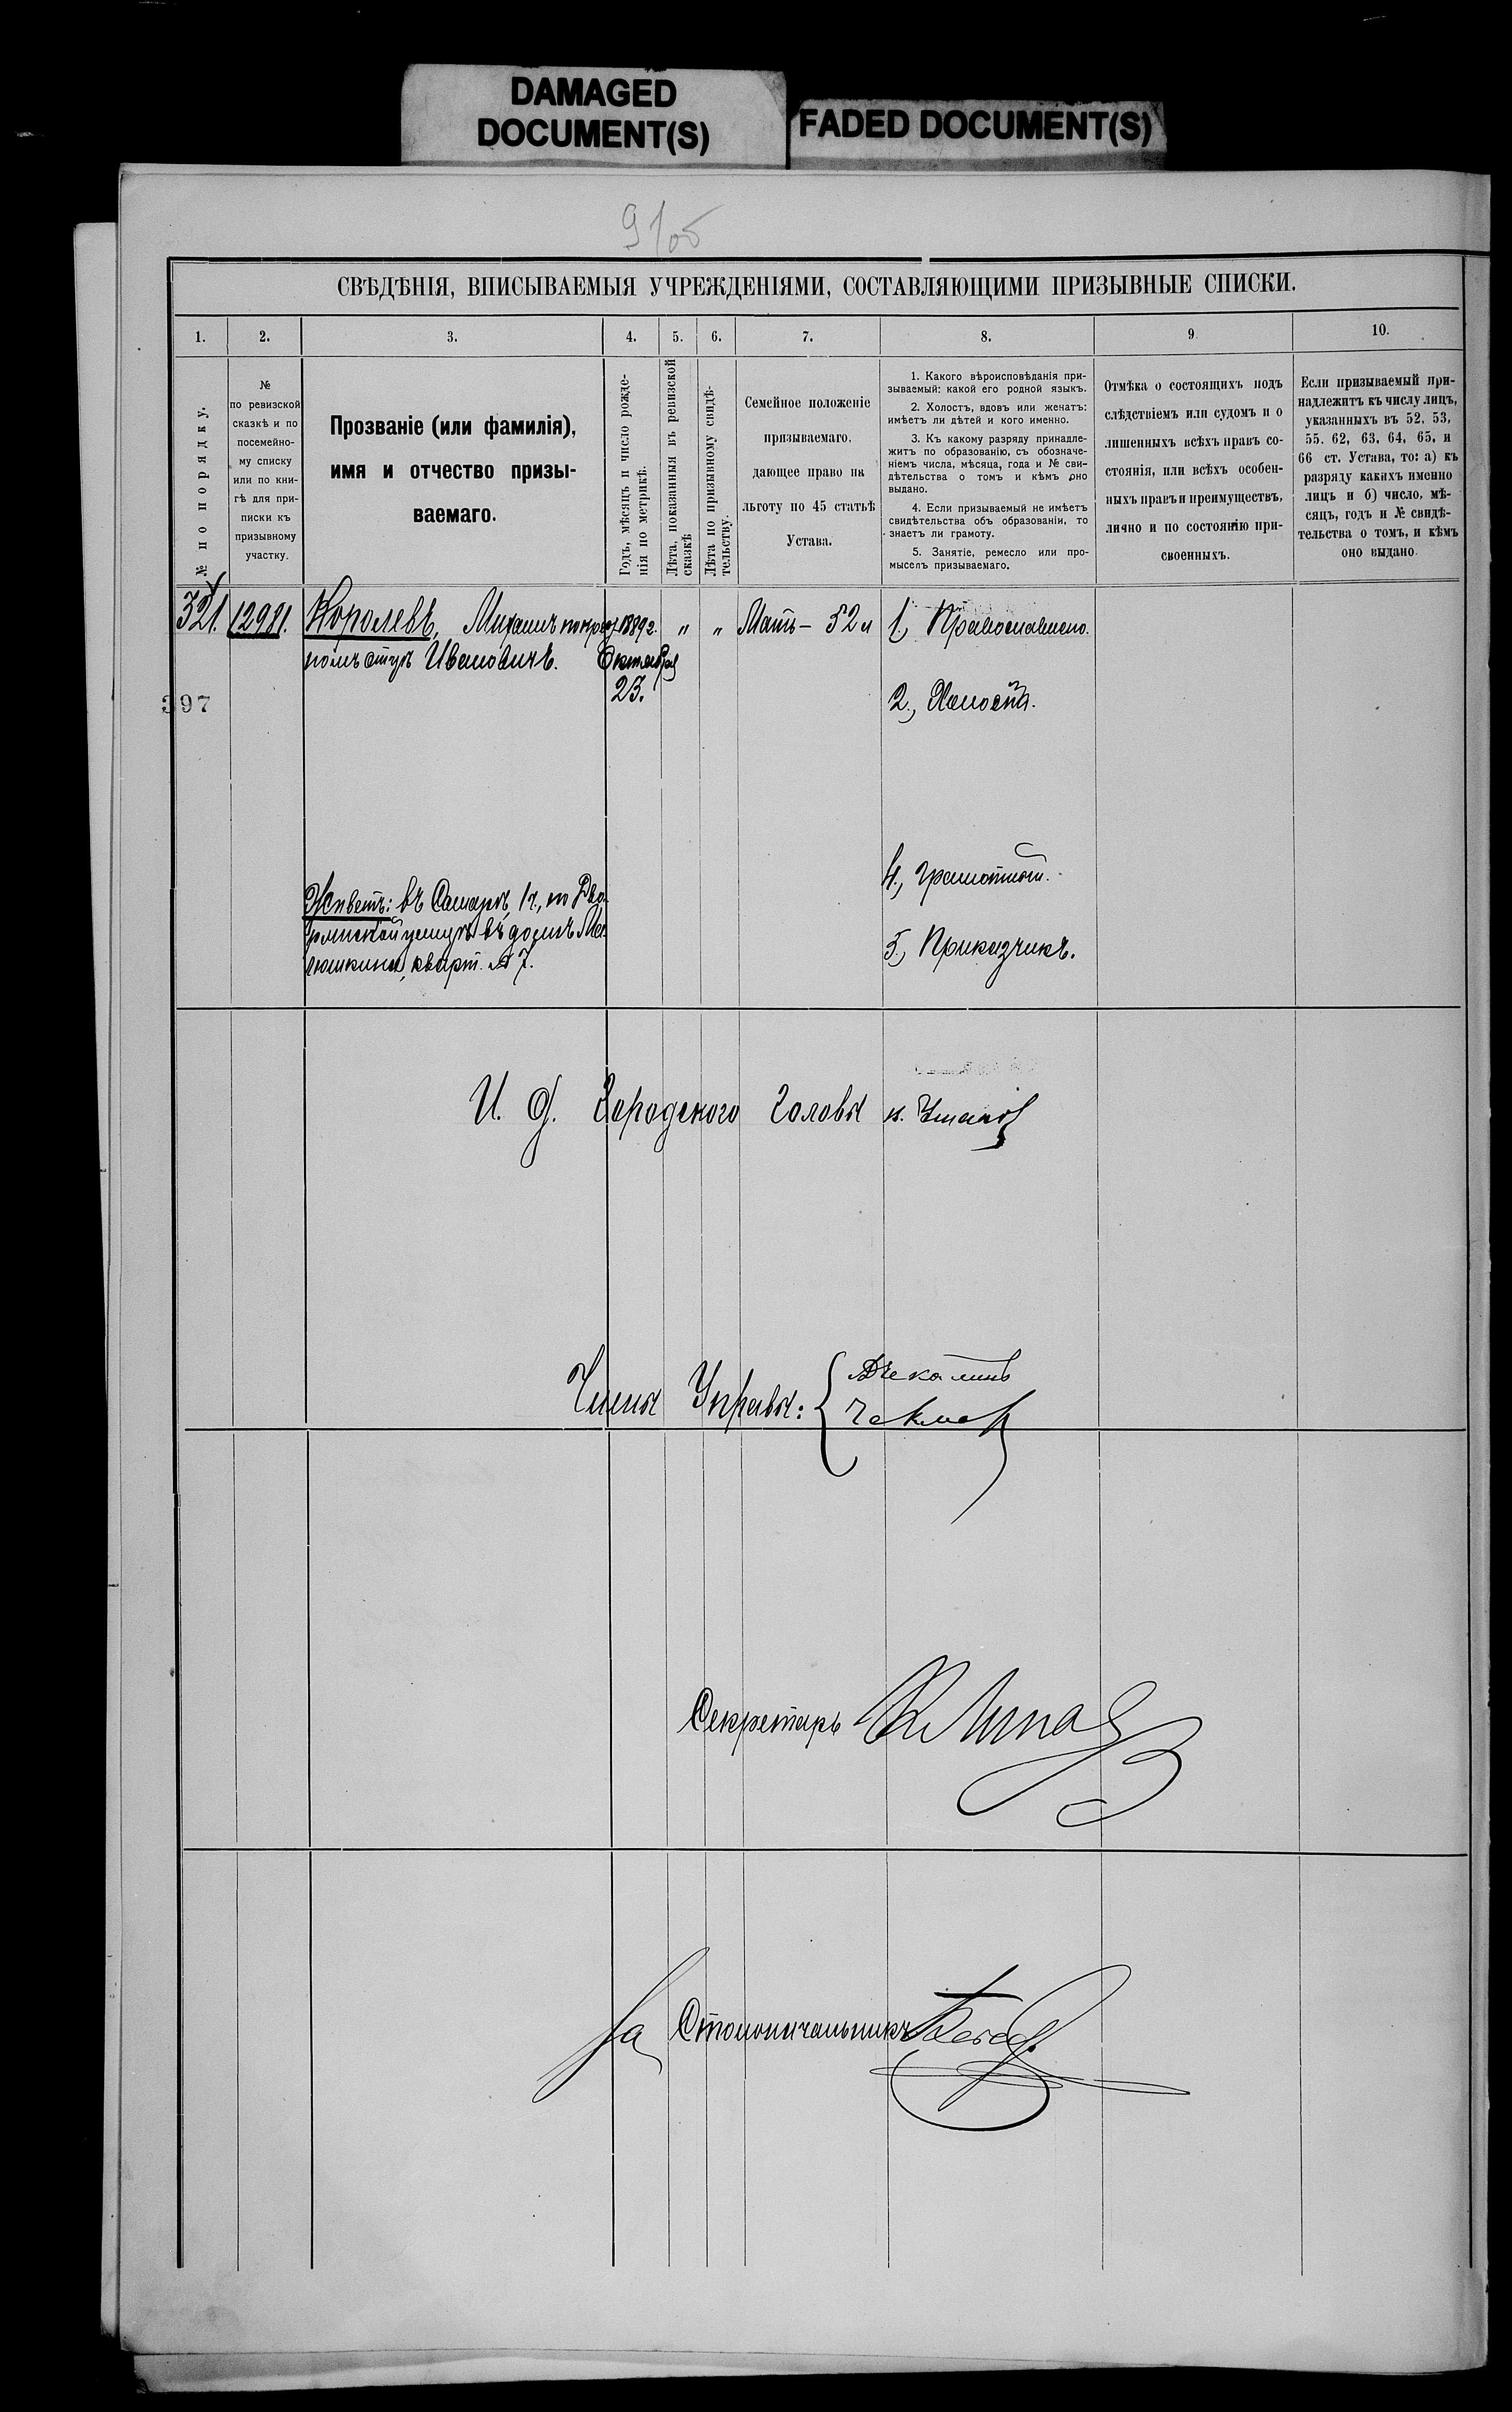 DAMAGED
DOCUMENT(S)
FADED DOCUMENT(S)
91об
СВѢДѢНІЯ, ВПИСЫВАЕМЫЯ УЧРЕЖДЕНІЯМИ, СОСТАВЛЯЮЩИМИ ПРИЗЫВНЫЕ СПИСКИ.
1. 2. 3. 4. 5. 6. 7. 8. 9 10.
№ по порядку.
№
по ревизской
сказкѣ и по
посемейно-
му списку
или по кни-
гѣ для при-
писки къ
призывному
участку.
Прозваніе (или фамилія),
имя и отчество призы-
ваемаго.
Годъ, мѣсяцъ и число рожде-
нія по метрикѣ.
Лѣта, показанныя въ ревизской
сказкѣ
Лѣта по призывному свидѣ-
тельству.
Семейное положеніе
призываемаго,
дающее право на
льготу по 45 статьѣ
Устава.
1. Какого вѣроисповѣданія при-
зываемый: какой его родной языкъ.
2. Холостъ, вдовъ или женатъ:
имѣетъ ли дѣтей и кого именно.
3. Къ какому разряду принадле-
житъ по образованію, съ обозначе-
ніемъ числа, мѣсяца, года и № сви-
дѣтельства о томъ и кѣмъ оно
выдано.
4. Если призываемый не имѣетъ
свидѣтельства объ образованіи, то
знаетъ ли грамоту.
5. Занятіе, ремесло или про-
мыселъ призываемаго.
Отмѣка о состоящихъ подъ
слѣдствіемъ или судомъ и о
лишенныхъ всѣхъ правъ со-
стоянія, или всѣхъ особен-
ныхъ правъ и преимуществъ,
лично и по состоянію при-
своенныхъ.
Если призываемый при-
надлежитъ къ числу лицъ,
указанныхъ въ 52, 53,
55. 62, 63, 64, 65, и
66 ст. Устава, то: а) къ
разряду какихъ именно
лицъ и б) число, мѣ-
сяцъ, годъ и № свидѣ-
тельства о томъ, и кѣмъ
оно выдано.
321. 12981. Королевъ, Михаилъ по крес-
номъ отцѣ Ивановичъ.
1889 г.
Октября
23.
" " Мать - 52 л
1., Православнаго.
2., Холостъ.
397
4., Грамотный.
5., Приказчикъ.
Живетъ: въ Самарѣ, 1 ч., по Дво-
рянской улицѣ въ домѣ
кварт. № 7.
И. д. Городского Головы
Члены Управы:
Секретарь
За Столоначальникъ